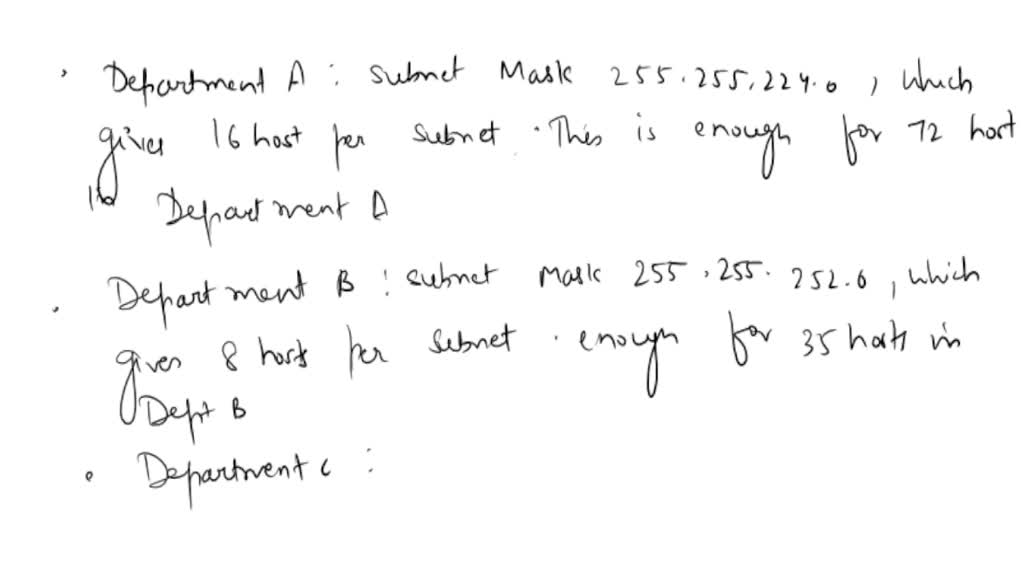 • Department A : Subnet Mask 255.255.224.0 , which
gives 16 host per subnet . This is enough for 72 host
in Department A
• Department B : subnet Mask 255.255.252.0 , which
gives 8 hosts per subnet . enough for 35 hosts in
Dept B
• Department C :